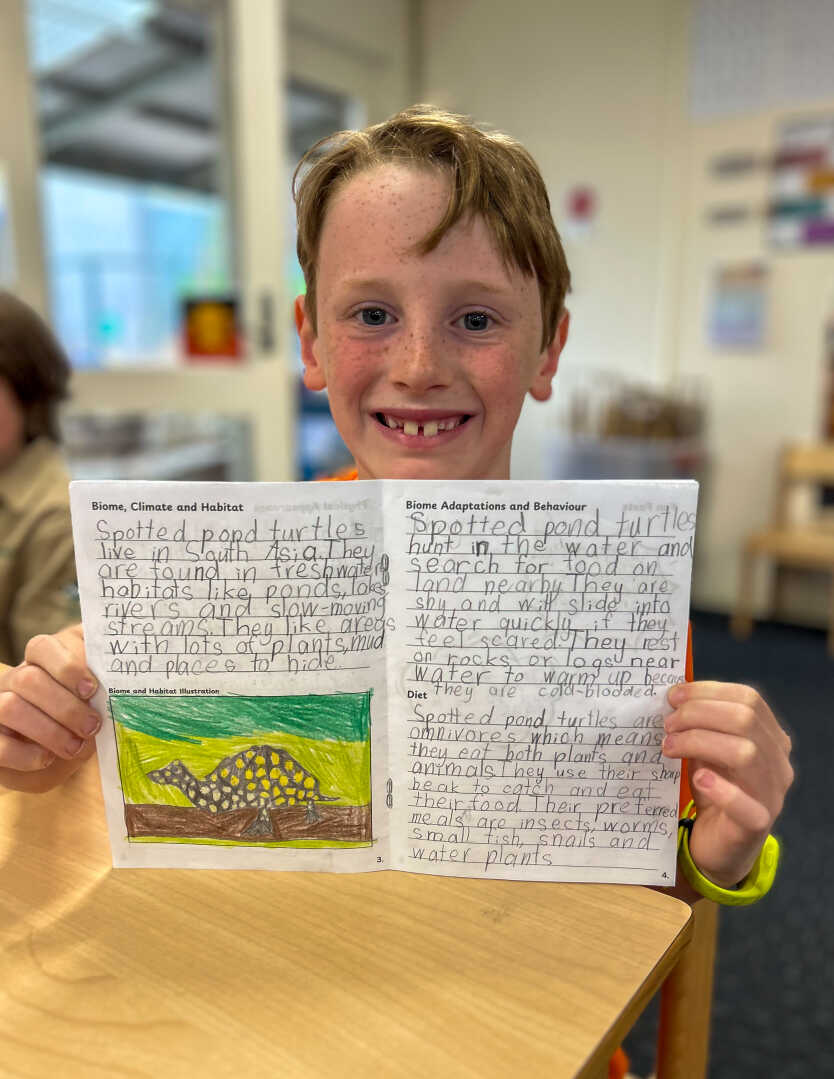 Biome, Climate and Habitat
Spotted pond turtles
live in South Asia. They
are found in freshwater
habitats like ponds, lakes
rivers and slow-moving
streams. They like areas
with lots of plants, mud
and places to hide.
Biome and Habitat Illustration
3.
Biome Adaptations and Behaviour
Spotted pond turtles
hunt in the water and
search for food on
land nearby. They are
shy and will slide into
water quickly if they
feel scared. They rest
on rocks or logs near
water to warm up because
they are cold-blooded.
Diet
Spotted pond turtles are
omnivores which means
they eat both plants and
animals. They use their sharp
beak to catch and eat
their food. Their preferred
meals are insects, worms,
small fish, snails and
water plants
4.